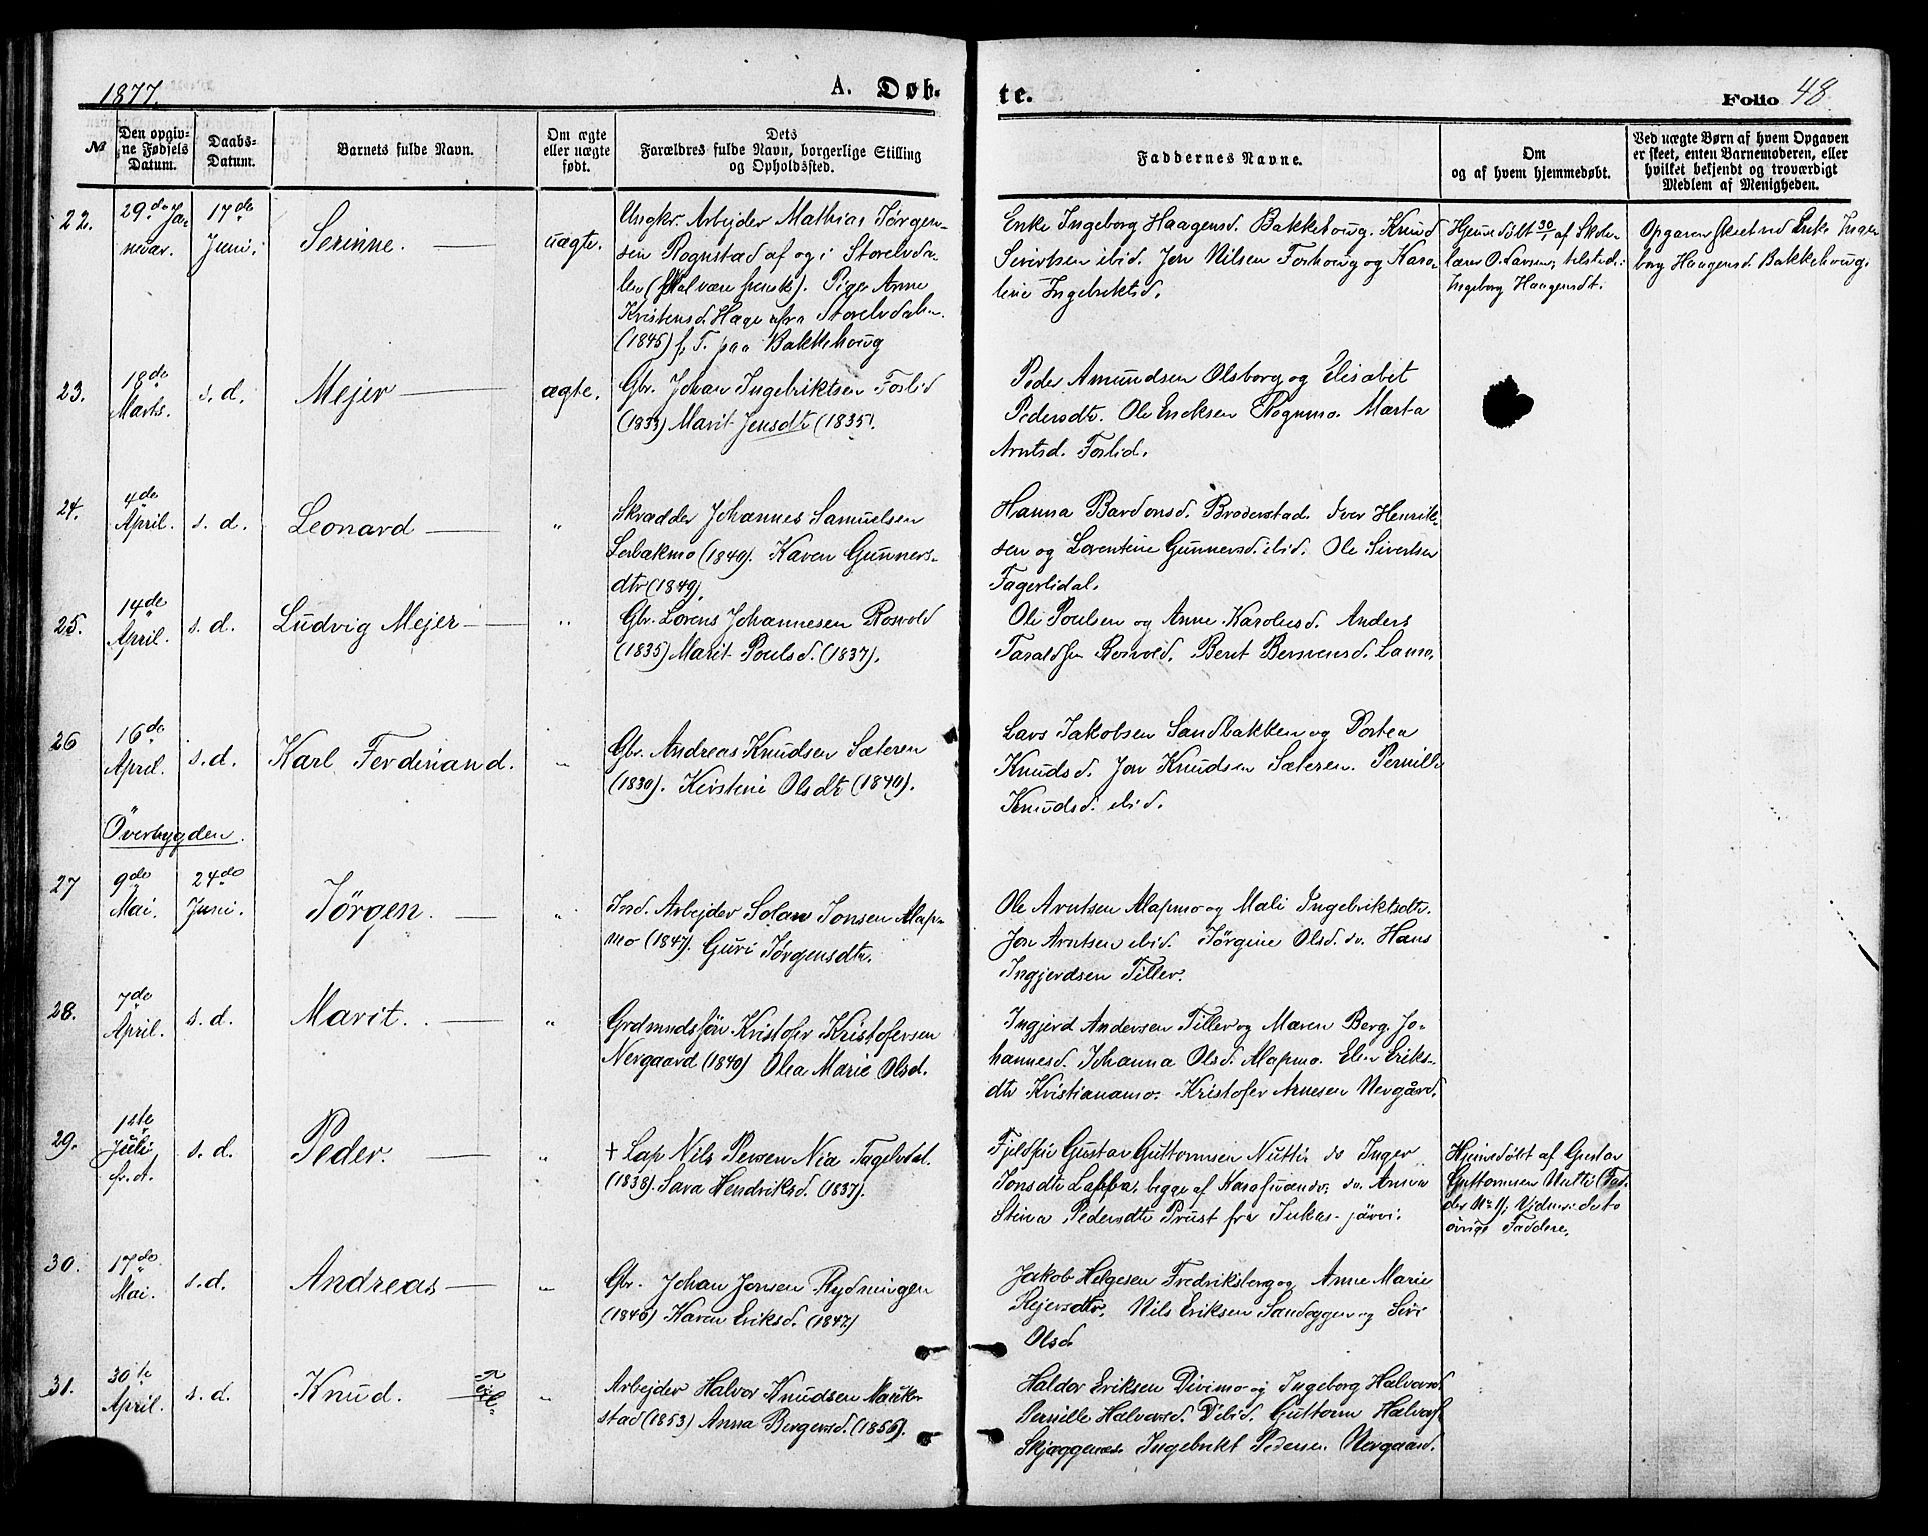 1877.
A. Døb-
te.
Folio 48.
№
Den opgiv-
ne Fødsels
Datum.
Daabs-
Datum.
Barnets fulde Navn.
Om ægte
eller uægte
født.
Dets
Forældres fulde Navn, borgerlige Stilling
og Opholdssted.
Faddernes Navne.
Om
og af hvem hjemmedøbt.
Ved uægte Børn af hvem Opgaven
er skeet, enten Barnemoderen, eller
hvilket bekjendt og troværdigt
Medlem af Menigheden.
22.
29de Ja-
nuar.
17de
Juni.
Serinne.
uægte.
Ungkr. Arbejder Mathias Jørgen-
sen Rognstad af og i Storelvda-
len (skal være svensk). Pige Anne
Kristensd. Hage fra Storelvdalen.
(1845) f. T. paa Bakkehoug
Enke Ingeborg Haagensd. Bakkehoug. Knud
Sivertsen ibid. Jon Nilsen Foshoug og Karo-
line Ingebriktsd.
Hjemmedøbt 30/1 af Skole-
lærer O. Larsen; tilsted:
Ingeborg Haagensdt.
Opgaven skeet ved Enke Inge-
borg Haagensd. Bakkehoug.
23.
18de
Marts.
s. d.
Mejer
ægte.
Gbr. Johan Ingebriktsen Foslid
(1833) Marit Jensdtr (1835).
Peder Amundsen Olsborg og Elisabet
Pedersdtr. Ole Ericksen Rognmo. Marta
Arntsd. Foslid.
24.
4de
April.
s. d.
Leonard
"
Skrædder Johannes Samuelsen
(1849). Karen Gunners-
dtr (1849).
Hanna Bardonsd. Broderstad. Iver Henrik-
sen og Lorentine Gunnersd. ibid. Ole Sivertsen
Fagerlidal.
25.
14de
April.
s. d.
Ludvig Mejer
"
Gbr. Lorens Johannesen Rosvold
(1835) Marit Poulsd. (1837).
Ole Poulsen og Anne Karolusd. Anders
Taraldsen Rosvold. Berit
26
16de
April.
s. d.
Karl Ferdinand.
"
Gbr. Andreas Knudsen Sæteren
(1830). Kirstine Olsdtr (1840).
Lars Jakobsen Sandbakken og Dortea
Knudsd. Jon Knudsen Sæteren. Pernille
Knudsd. ibid.
Överbygden.
27
9de
Mai.
24de
Juni.
Jörgen.
"
Ind. Arbejder Jonsen Alap-
mo (1847). Guri Jörgensdtr.
Ole Arntsen Alapmo og Mali Ingebriktsdtr.
Jon Arntsen ibid. Jörgine Olsd. do. Hans
Ingjerdsen Tiller.
28.
7de
April.
s. d.
Marit.
"
Grdmandssøn Kristofer Kristofersen
Nergaard (1840) Olea Marie Olsd.
Ingjerd Andersen Tiller og Maren Berg. Jo-
hannesd. Johanna Olsd. Alapmo. Elen Eriks-
dtr Kristianamo. Kristofer Arnesen Nergård.
29.
1ste
Juli
fr. A.
s. d.
Peder.
"
+ Lap Nils Persen Nia Tagelvdal.
(1838). Sara Hendriksd. (1837).
Gustav Guttormsen Nutti. do Inger
Jonsdtr Lappa, begge af Karasuando; do. Anna
Stina Pedersdtr Prust fra Jukas-järvi.
Hjemmedöbt af Gustav
Guttormsen Nutti (Fad-
der № 1). Vidner: de to
övrige Faddere.
30.
17de
Mai.
s. d.
Andreas
"
Gbr. Johan Jonsen Rydningen
(1846) Karen Eriksd. (1847)
Jakob Helgesen Fredriksberg og Anne Marie
Rejersdtr. Nils Eriksen Sandeggen og Siri
Olsd.
31.
30te
April.
s. d.
Knud.
"
Arbejder Halvor Knudsen Nauk-
stad (1853) Anna Bergersd. (1856).
Haldor Eriksen Divimo og Ingeborg Halvorsd.
Pernille Halvorsd. ibid. Guttorm Halvors.
Skjæggenæs. Ingebrikt Pedersen Nergaard.